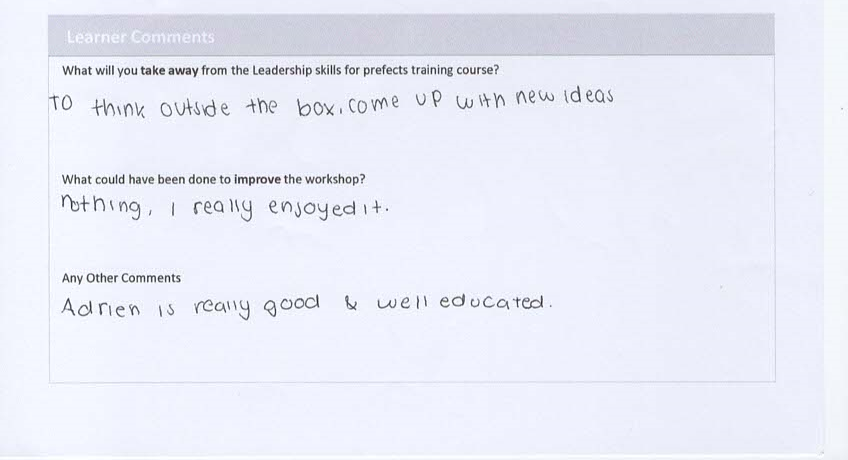 Learner Comments
What will you take away from the Leadership skills for prefects training course?
TO think outside the box, come up with new ideas
What could have been done to improve the workshop?
nothing, I really enjoyed it.
Any Other Comments
Adrien is really good & well educated.